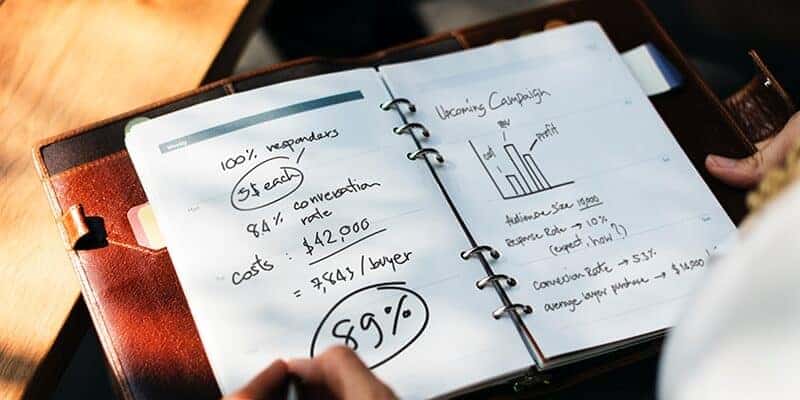 100% responders
5$ each
84% conversation
rate
costs : $42,000
= 7,843/buyer
89%
Upcoming Campaign
cost
profit
Audience Size 10,000
Response Rate → 10%
(expect, how?)
Conversion Rate → 5.3%
average buyer purchase → $14,000